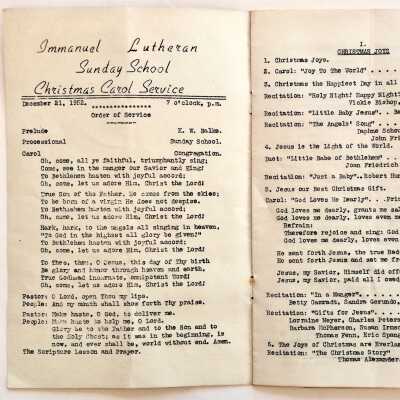 Immanuel Lutheran
Sunday School
Christmas Carol Service
December 21, 1952. 7 o'clock, p.m.
Order of Service
Prelude K. W. Balks.
Processional Sunday School.
Carol Congregation.
Oh, come, all ye faithful, triumphantly sing;
Come, see in the manger our Savior and King!
To Bethlehem hasten with joyful accord;
Oh, come, let us adore Him, Christ the Lord!
True Son of the Father, He comes from the skies;
To be born of a virgin He does not despise.
To Bethlehem hasten with joyful accord;
Oh, come, let us adore Him, Christ the Lord!
Hark, hark, to the angels all singing in heaven,
"To God in the highest all glory be given,"
To Bethlehem hasten with joyful accord;
Oh, come, let us adore Him, Christ the Lord!
To Thee, then, O Jesus, this day of Thy birth
Be glory and honor through heaven and earth,
True Godhead incarnate, omnipotent Word!
Oh, come, let us adore Him, Christ the Lord!
Pastor: O Lord, open Thou my lips.
People: And my mouth shall show forth Thy praise.
Pastor: Make haste, O God, to deliver me.
People: Make haste to help me, O Lord.
Glory be to the Father and to the Son and to
the Holy Ghost; as it was in the beginning, is
now, and ever shall be, world without end. Amen.
The Scripture Lesson and Prayer.
I.
CHRISTMAS JOYS
1. Christmas Joys.
2. Carol: "Joy To The World" . . . .
3. Christmas the Happiest Day in all
Recitation: "Holy Night! Happy Night!
Vickie Bishop,
Recitation: "Little Baby Jesus" . . Be
Recitation: "The Angels' Song" . . . .
Daphne School
John Fried
4. Jesus is the Light of the World.
Duet: "Little Babe of Bethlehem" . .
Joan Friedrich
Recitation: "Just a Baby" . . Robert Hun
5. Jesus our Best Christmas Gift.
Carol: "God Loves Me Dearly" . . . Prim
God loves me dearly, grants me sal
God loves me dearly, loves even me
Refrain:
Therefore rejoice and sing: God
God loves me dearly, loves even
He sent forth Jesus, the true Red
He sent forth Jesus and set me fr
Jesus, my Savior, Himself did off
Jesus, my Savior, paid all I owed
Recitation: "In a Manger" . . . .
Recitation: "Gifts for Jesus" . . . .
Lorraine Meyer, Charles Peters
Barbara McPherson, Susan
Thomas Penn, Eric
6. The Joys of Christmas are Everlas
Recitation: "The Christmas Story"
Thomas Alexander